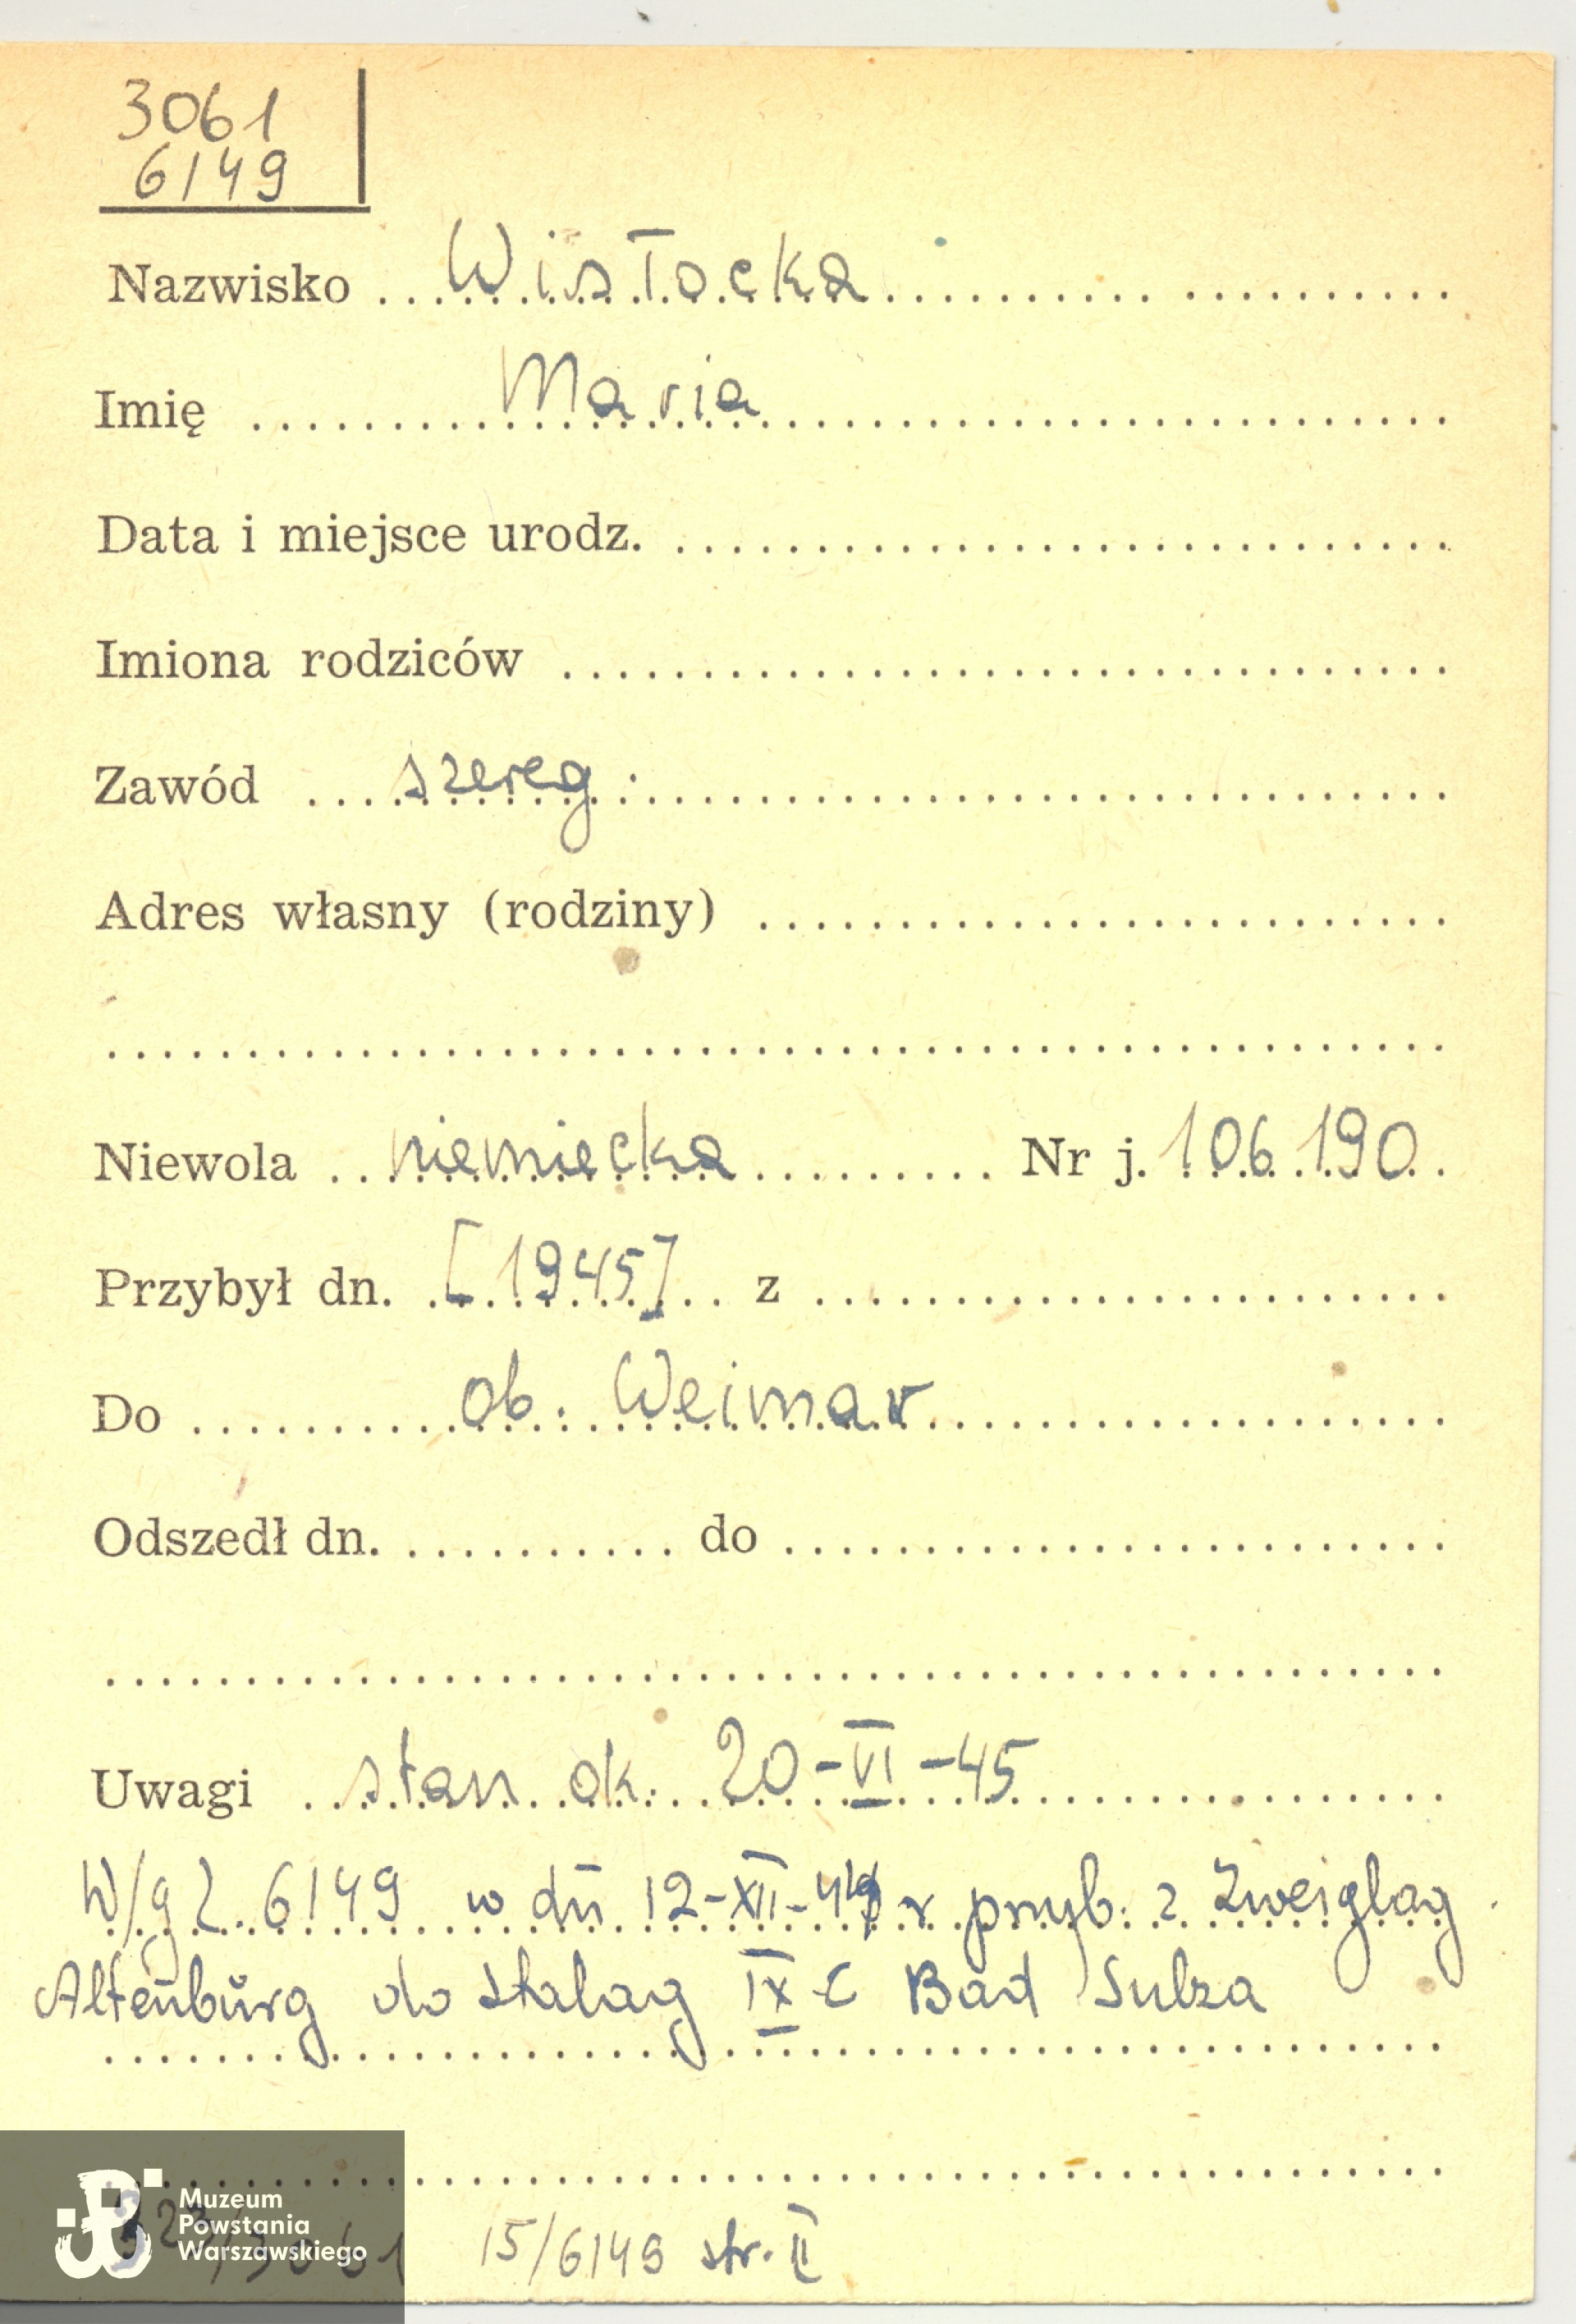 3061
6149
Nazwisko Wisłocka
Imię Maria
Data i miejsce urodz.
Imiona rodziców
Zawód szereg.
Adres własny (rodziny)
Niewola niemiecka Nr j. 106.190
Przybył dn. [1945] z
Do ob. Weimar
Odszedł dn. do
Uwagi stan ok. 20-VI-45
W/g L. 6149 w dn 12-XII-44 r przyb. z Zweiglag
Altenburg do Stalag IX C Bad Sulza
Muzeum
Powstania
Warszawskiego
323/3061 15/6149 str. II